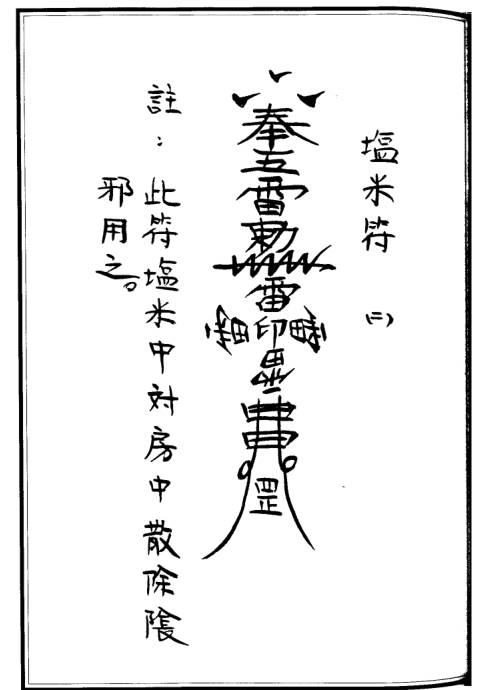 塩米符 (二)
奉五雷勅
雷
印
罡
註：此符塩米中对房中散除陰
邪用之。